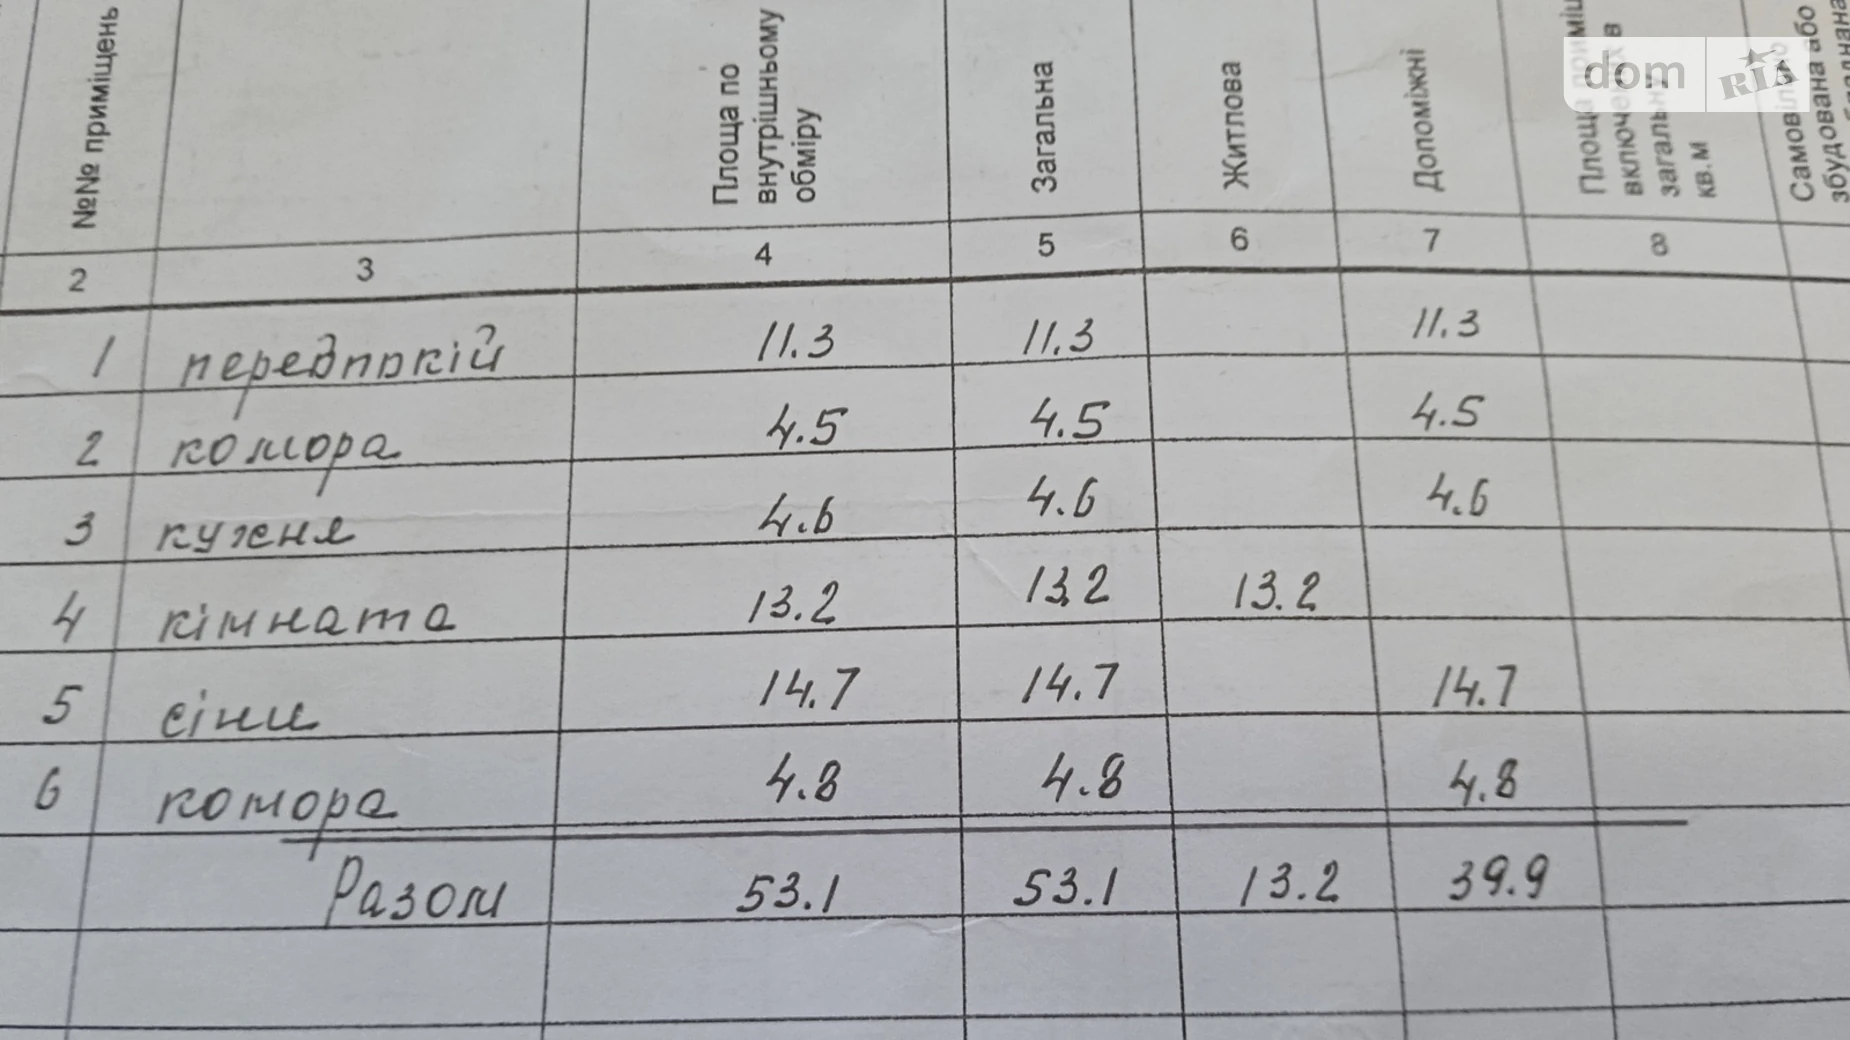 №№ приміщень
Площа по
внутрішньому
обміру
Загальна
Житлова
Допоміжні
Площа
загальн
кв.м
збудована або
dom RIA
2 3 4 5 6 7 8
1 передпокій 11.3 11.3 11.3
2 комора 4.5 4.5 4.5
3 кухня 4.6 4.6 4.6
4 кімната 13.2 13.2 13.2
5 сіни 14.7 14.7 14.7
6 комора 4.8 4.8 4.8
Разом 53.1 53.1 13.2 39.9